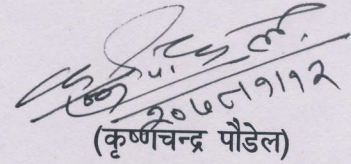 २०७८।१।१२
(कृष्णचन्द्र पौडेल)